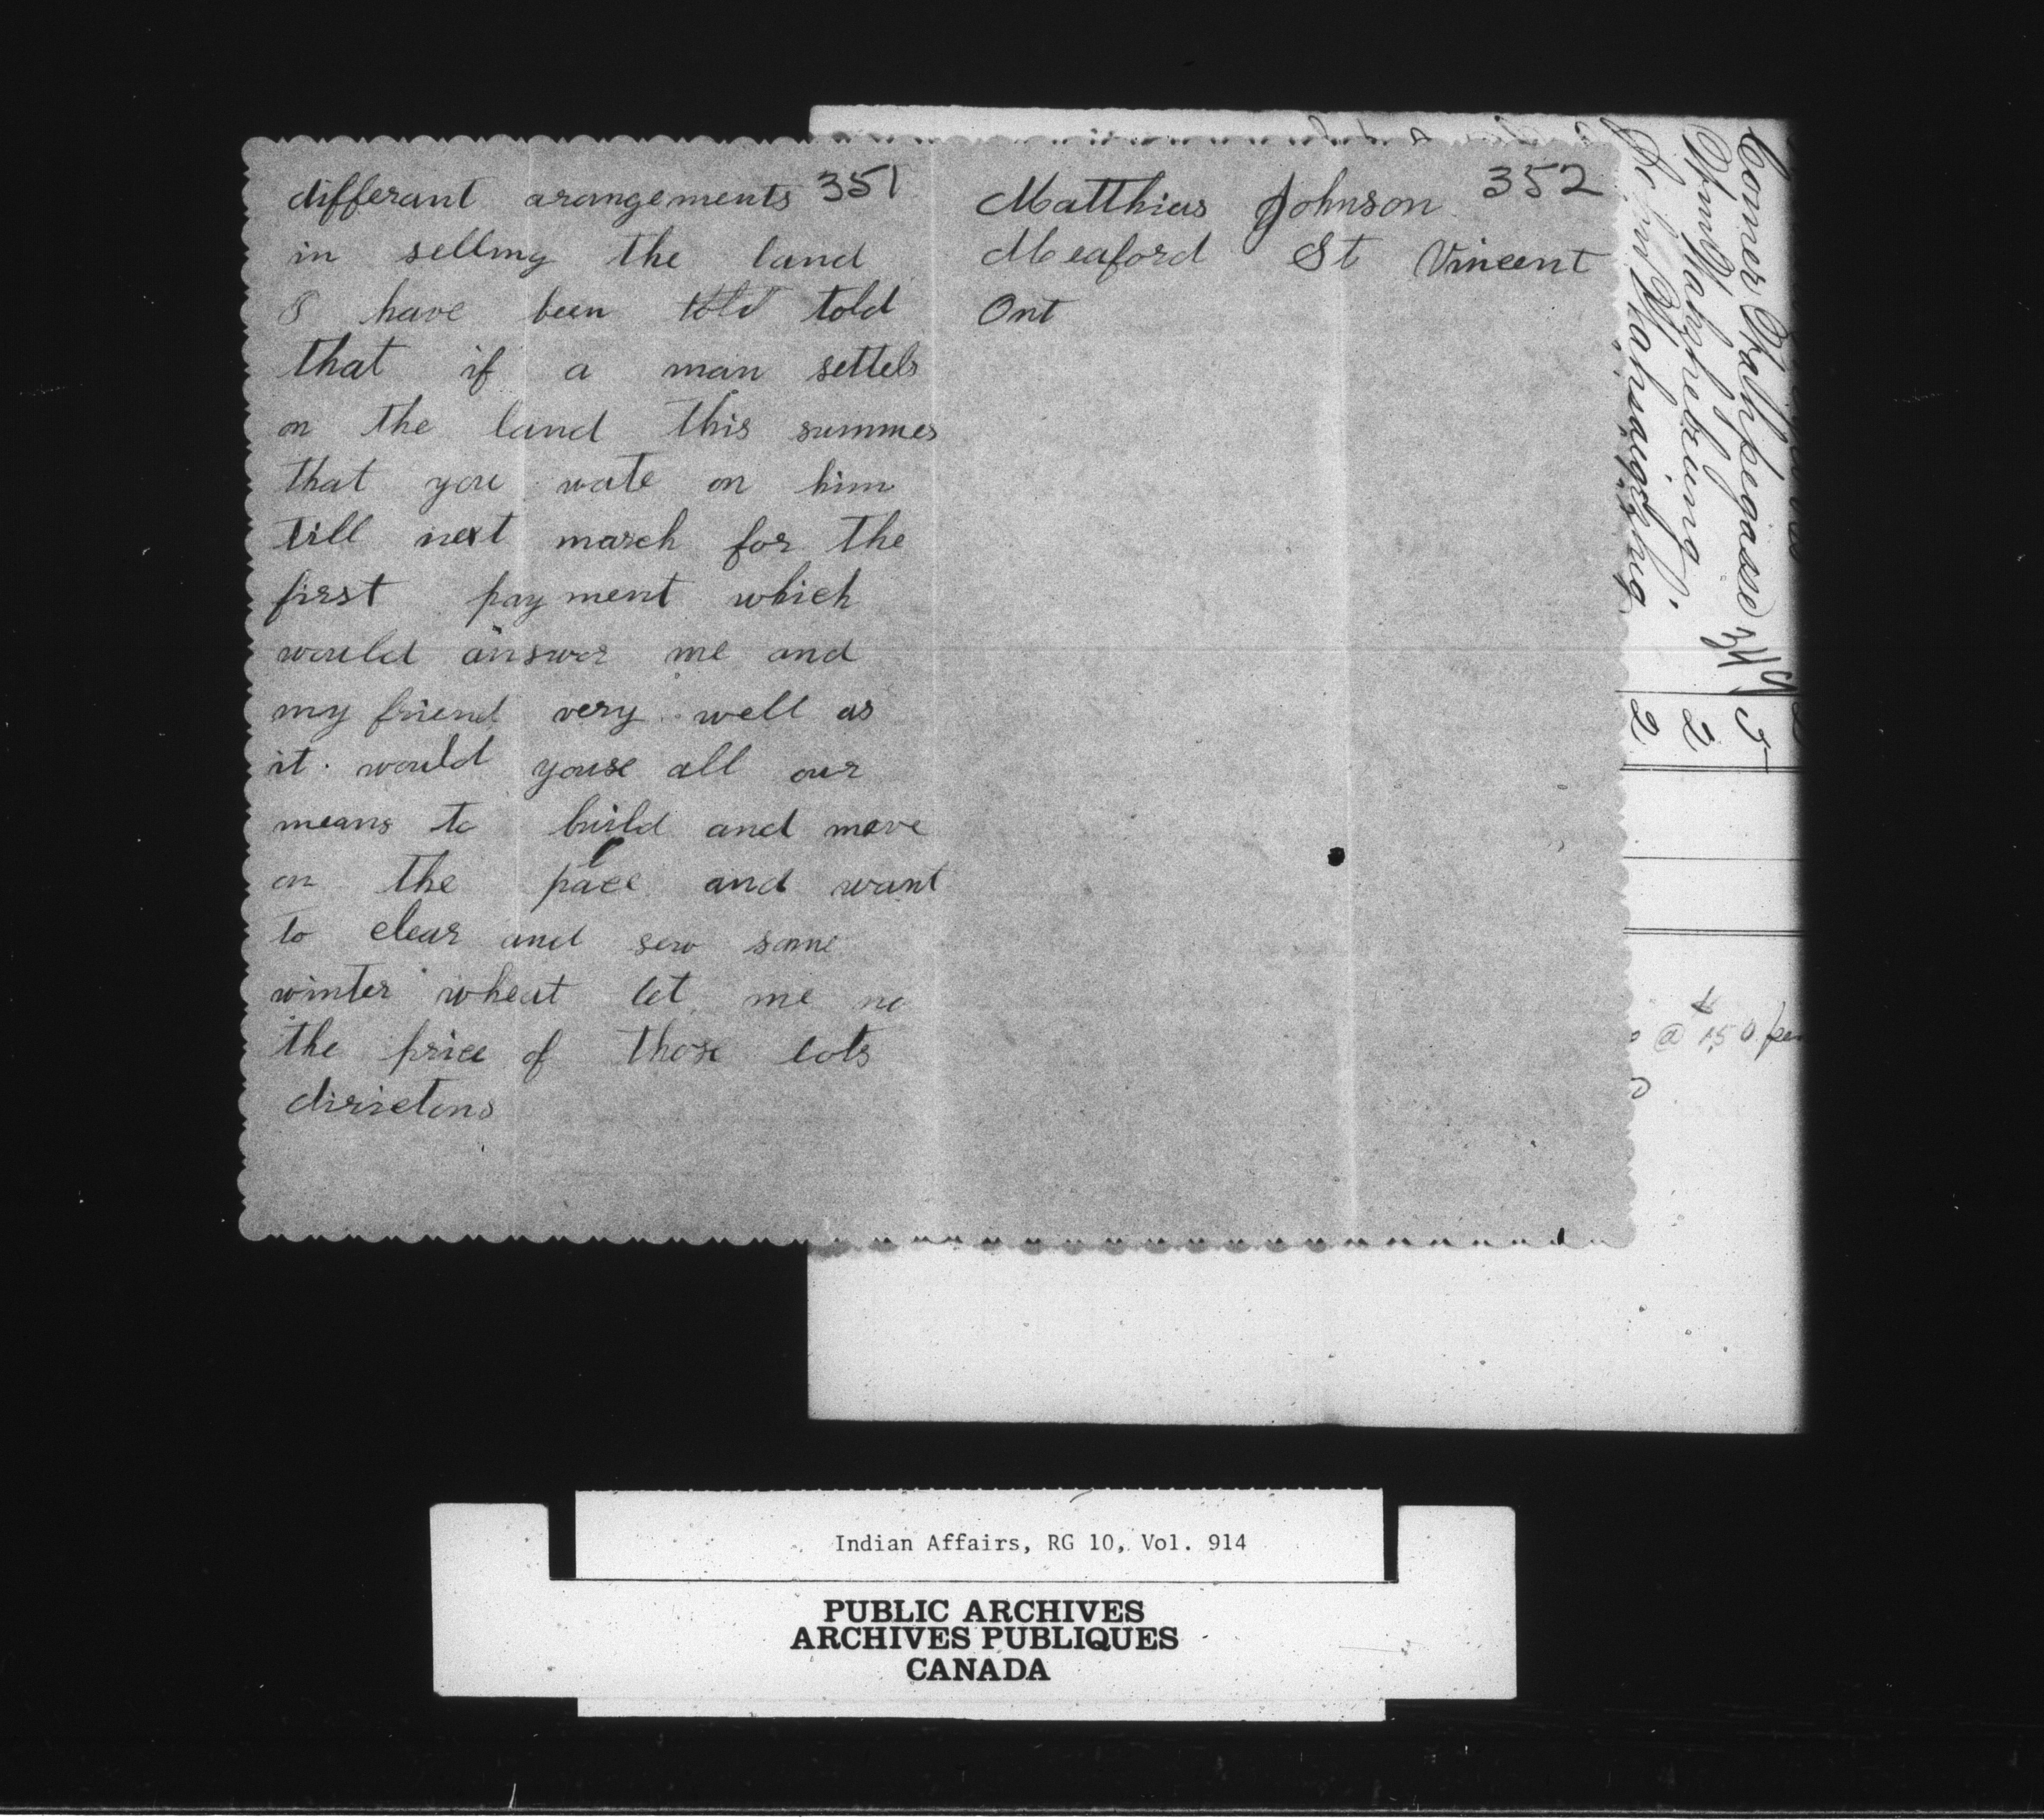 differant arangements 351
in selling the land
I have been told told
that if a man settels
on the land this summer
that you wate on him
till next march for the
first payment which
would answer me and
my friend very well as
it would youse all our
means to build and move
on the place and want
to clear and sow some
winter wheat let me no
the price of those lots
dirictons
Matthias Johnson 352
Meaford St Vincent
Ont
2
2
5
@ 1.50 per
Indian Affairs, RG 10, Vol. 914
PUBLIC ARCHIVES
ARCHIVES PUBLIQUES
CANADA